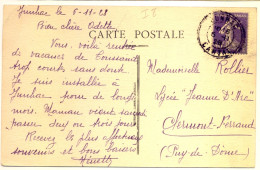 Junhac le 5-11-28
Bien chère Odette
CARTE POSTALE
Vous, voilà rentrée
de vacances de Toussaint
trop courtes sans doute
Je suis installée à
Junhac pour de longs
mois. Maman vient souvent
passer deux ou trois jours
Recevez les plus affectueux
souvenirs et bons baisers
Ginette
Mademoiselle Rollier
Lycée "Jeanne d'Arc"
Clermont-Ferrand
(Puy-de-Dôme)